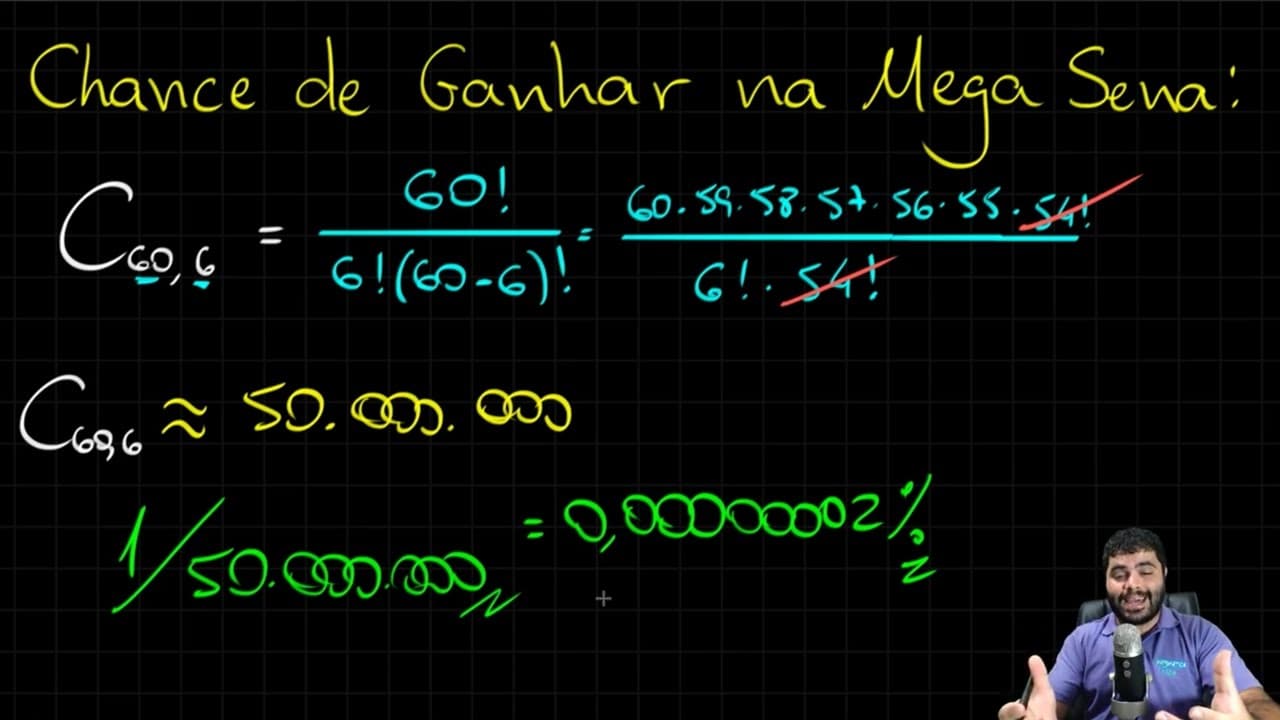 Chance de Ganhar na Mega Sena:
C60,6 = 60! / 6!(60-6)! = 60.59.58.57.56.55.54! / 6!.54!
C60,6 ≈ 50.000.000
1/50.000.000 = 0,00000002%